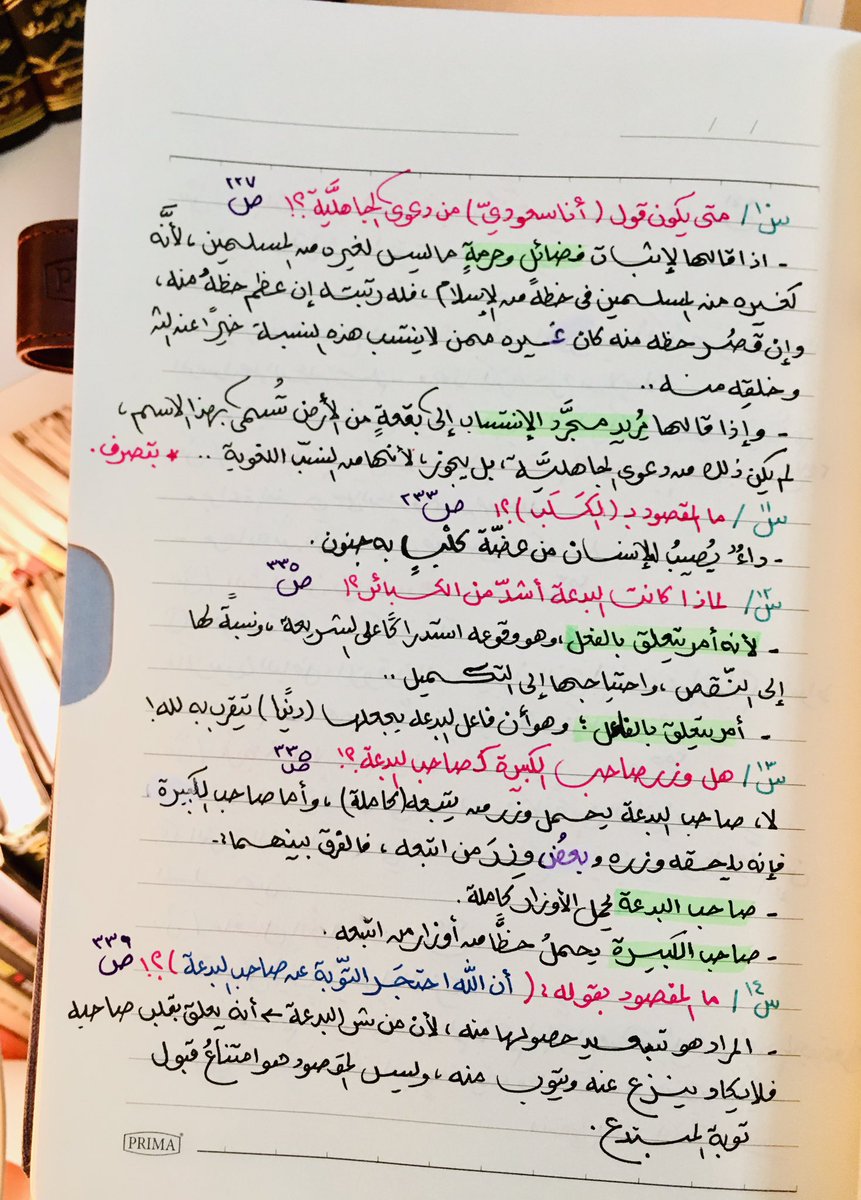 س١٠/ متى يكون قول (أنا سعوديّ) من دعوى الجاهليَّة؟! ص ٢٢٧
- اذا قالها لإثبات فضائل وحرمةٍ ما ليس لغيره من المسلمين، لأنَّه
كغيره من المسلمين في حظهً من الإسلام، فله رتبته إن عظم حظهُ منه،
وإن قَصُر حظه منه كان غيره ممن لا ينتسب هذه النسبة خيرًا عند الله
وخلقِه منه ..
- وإذا قالها يُريد مجرَّد الإنتساب إلى بقعةٍ من الأرض تُسمى بهذا الاسم،
لم يكن ذلك من دعوى الجاهليَّة، بل يجوز، لأنها من النسب اللغوية .. * بتصرف.
س١١/ ما المقصود بـ (الكَلَب)؟! ص ٢٣٣
- داءٌ يُصيبُ الإنسان من عضّة كلْبٍ به جنون.
س١٢/ لماذا كانت البدعة أشدّ من الكبائر؟! ص ٣٣٥
- لأنه أمر يتعلق بالفعل، وهو وقوعه استدراكًا على الشريعة، ونسبةً لها
إلى النّقص، واحتياجها إلى التكميل ..
- أمر يتعلق بالفاعل؛ وهو أن فاعل البدعه يجعلها (دينًا) يتقرب به لله!
س١٣/ هل وزر صاحب الكبيرة كـ صاحب البدعة؟! ص ٣٣٥
لا، صاحب البدعة يحمل وزر من يتبعه (كاملة)، وأما صاحب الكبيرة
فإنه يلحقه وزره وبعضُ وزرَ من اتبعه، فالفرق بينهما:-
- صاحب البدعة يحمل الأوزار كاملة.
- صاحب الكبيرة يحملُ حظًّا من أوزار من اتبعه.
س١٤/ ما المقصود بقوله: (أن الله احتجَر التّوبة عن صاحب البدعة)؟! ص ٣٣٩
- المراد هو تبعيد حصولها منه، لأن من شر البدعة ← أنه يعلق بقلب صاحبه
فلا يكاد ينزع عنه ويتوب منه، وليس المقصود هو امتناعُ قبول
توبة المبتدع.
PRIMA